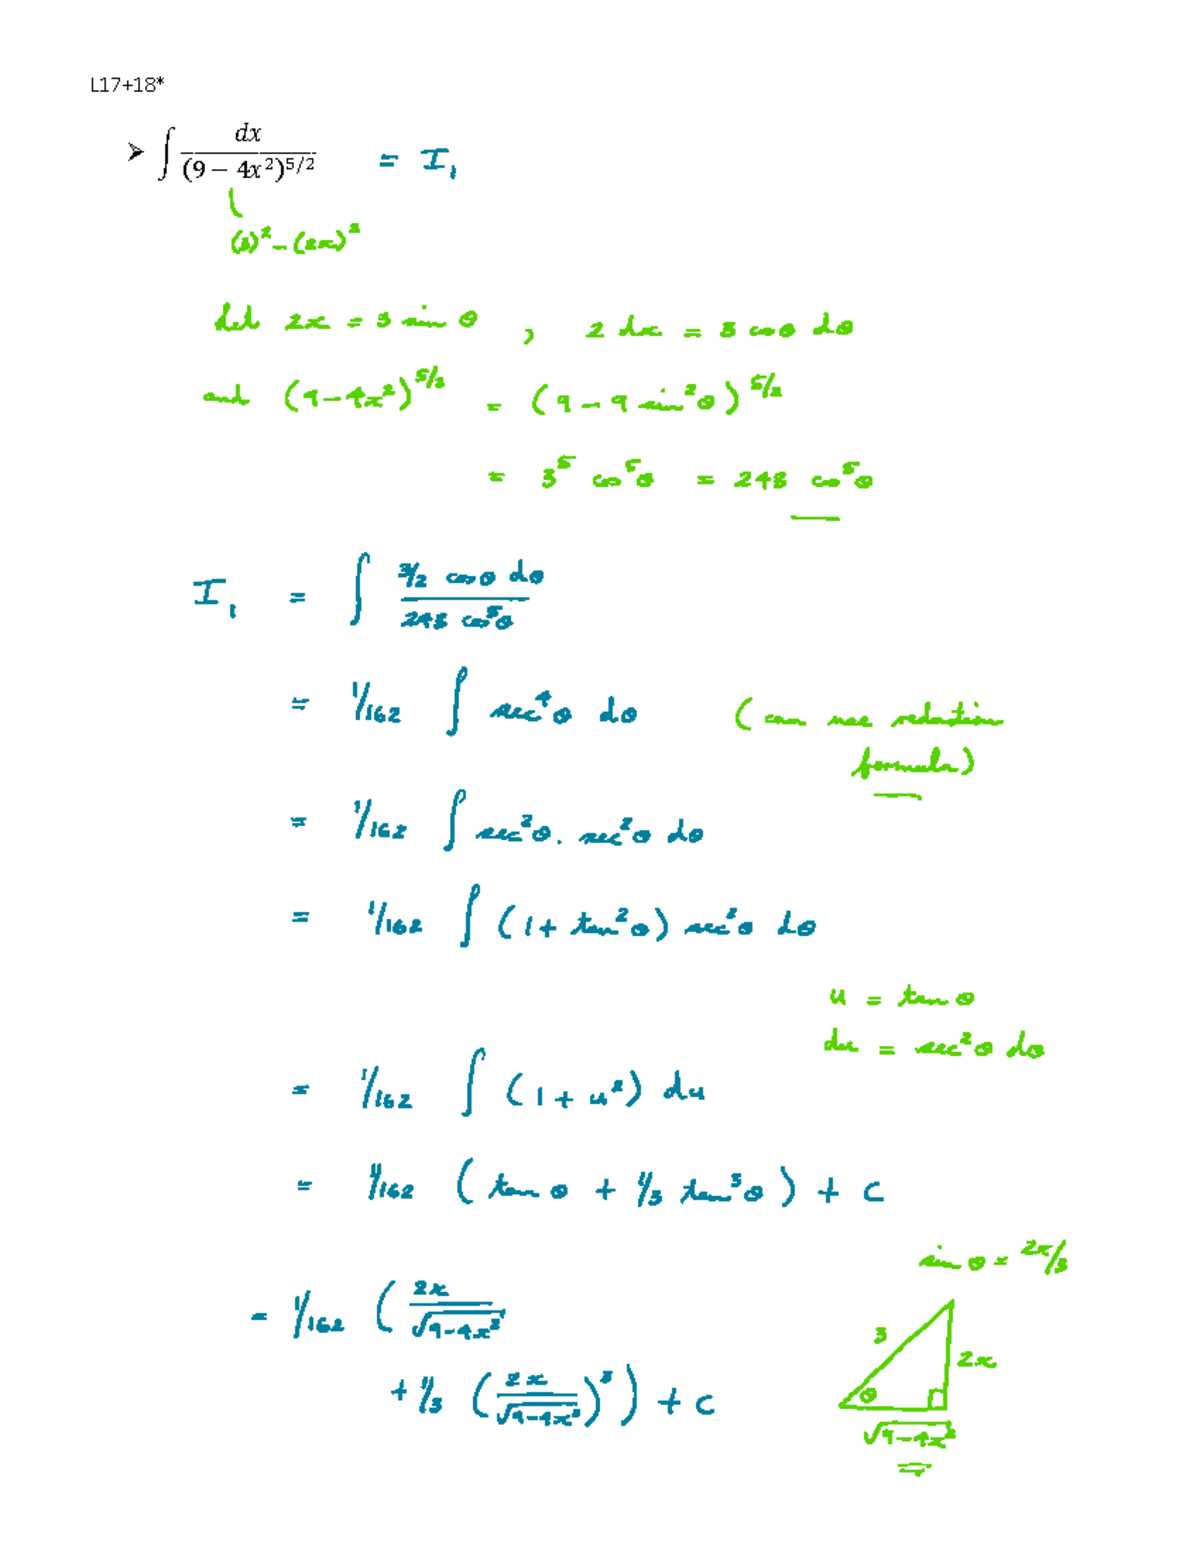 L17+18*
➤ ∫ dx / (9 − 4x²)^{5/2} = I₁
(3)² − (2x)²
Let 2x = 3 sin θ , 2 dx = 3 cos θ dθ
and (9 − 4x²)^{5/2} = (9 − 9 sin²θ)^{5/2}
= 3⁵ cos⁵θ = 243 cos⁵θ
I₁ = ∫ 3/2 cos θ dθ / 243 cos⁵θ
= 1/162 ∫ sec⁴θ dθ (can use reduction
formula)
= 1/162 ∫ sec²θ . sec²θ dθ
= 1/162 ∫ (1 + tan²θ) sec²θ dθ
u = tan θ
du = sec²θ dθ
= 1/162 ∫ (1 + u²) du
= 1/162 (tan θ + 1/3 tan³θ) + C
sin θ = 2x/3
= 1/162 ( 2x / √(9−4x²)
3
2x
+ 1/3 ( 2x / √(9−4x²) )³ ) + C
θ
√(9−4x²)